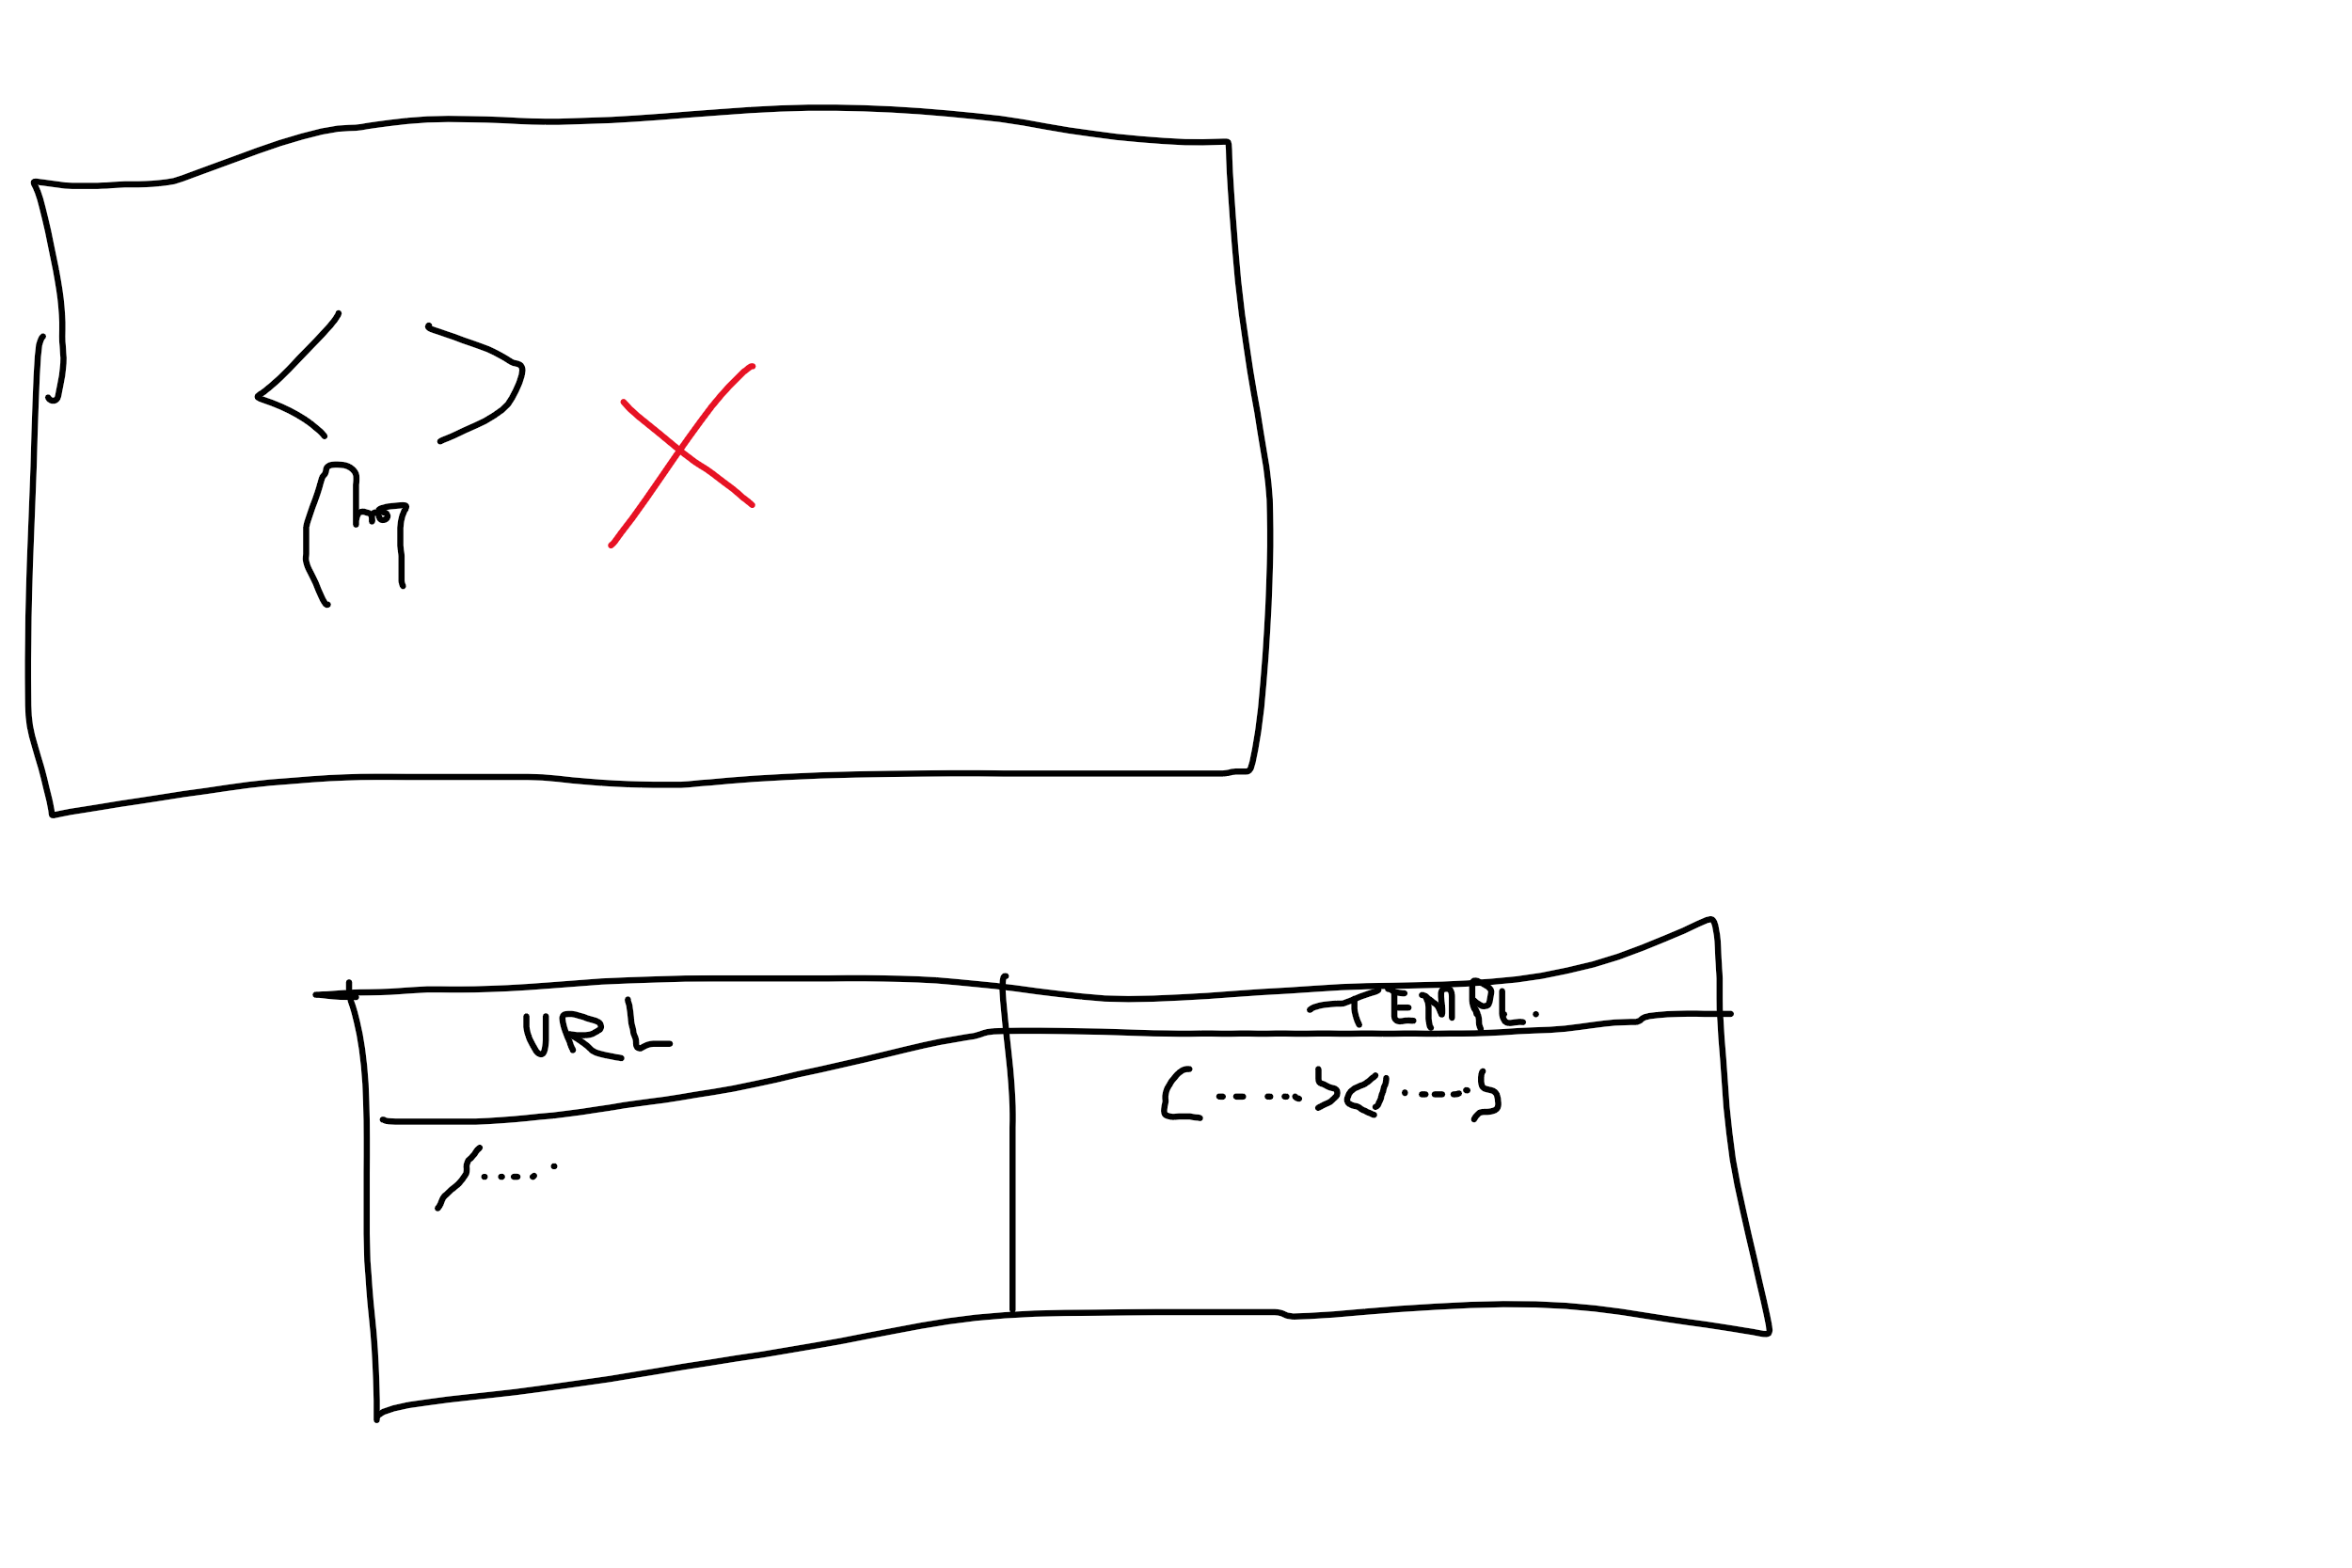 < >
URL TEMPL.
/.....
<.....></.....>